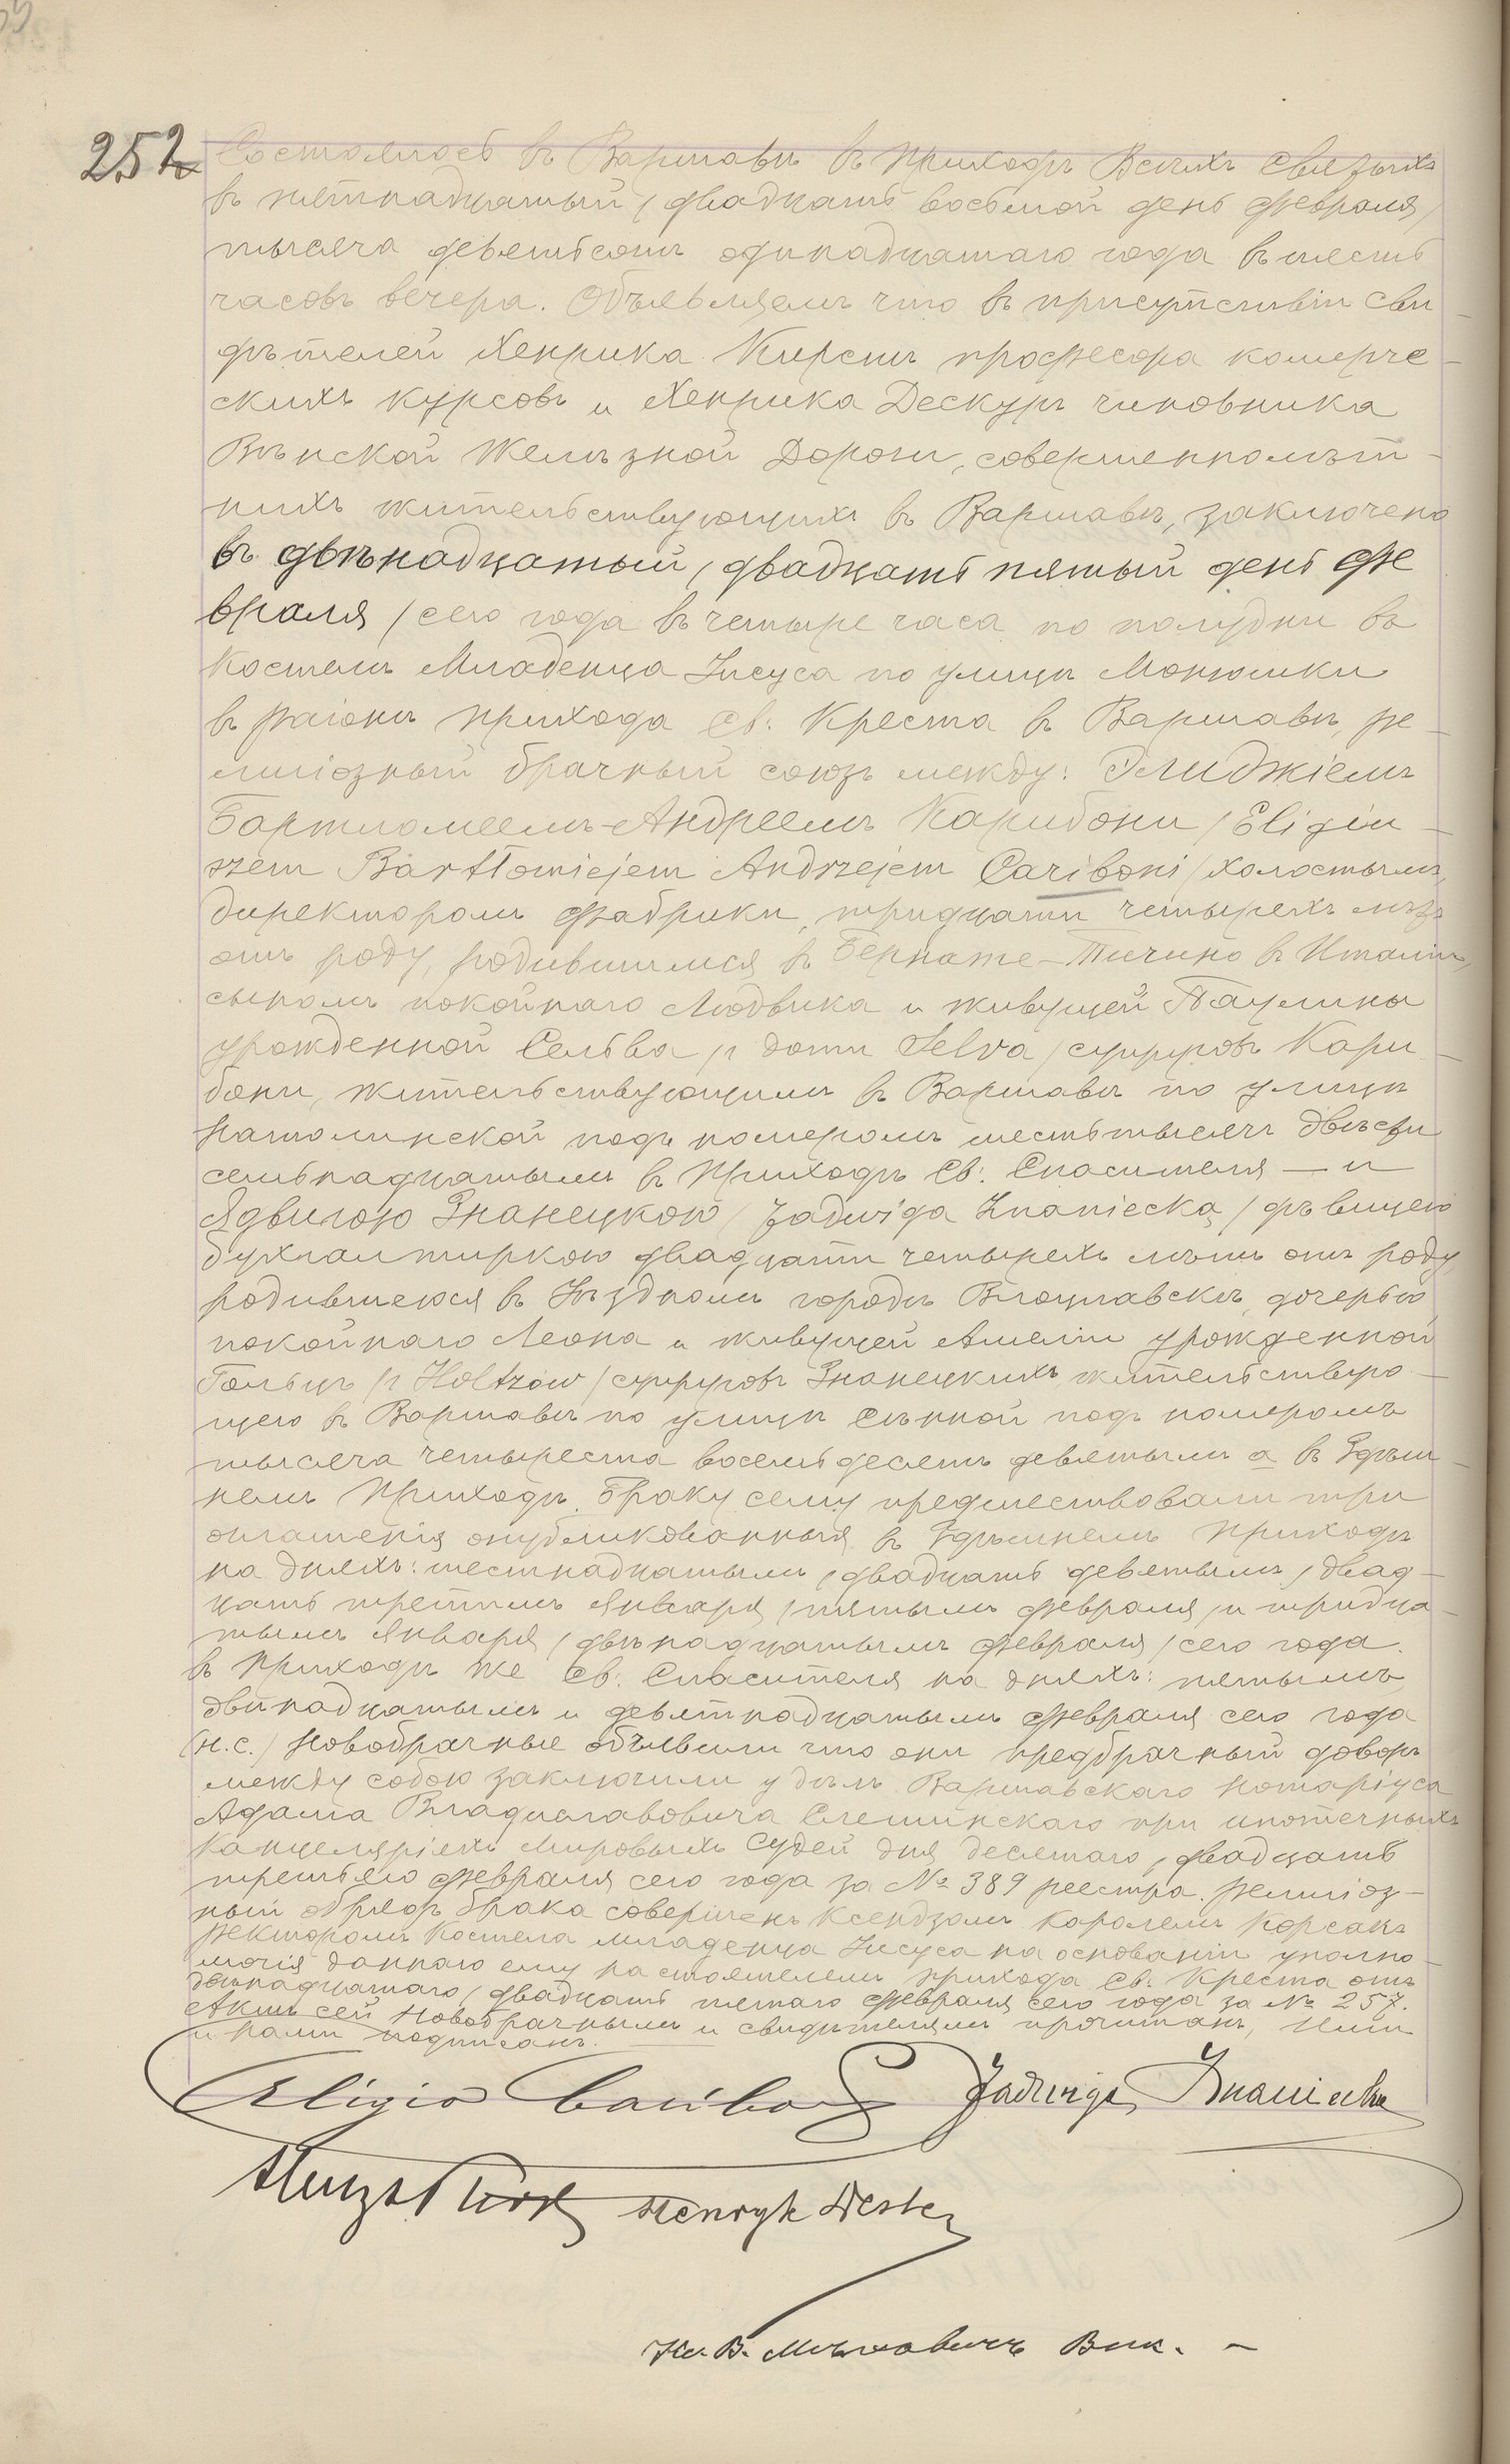 252
Состоялось въ Варшавѣ въ приходѣ Всѣхъ Святыхъ
въ пятнадцатый /двадцать восьмой день февраля/
тысяча девятьсотъ одинадцатаго года въ шесть
часовъ вечера. Объявляемъ что въ присутствіи сви-
дѣтелей Хенрика Кирстъ професора комерче-
скихъ курсовъ и Хенрика Дескуръ чиновника
Вѣнской Желѣзной Дороги, совершеннолѣт-
нихъ жительствующихъ въ Варшавѣ, заключено
въ двѣнадцатый /двадцать пятый день фе
враля/ сего года въ четыре часа по полудни въ
Костелѣ Младенца Іисуса по улицѣ Монюшки
въ раіонѣ прихода Св: Креста въ Варшавѣ, ре-
лигіозный брачный союзъ между: Элиджіемъ
Бартломеемъ-Андреемъ Карибони /Eligiu-
szem Bartłomiejem Andrzejem Cariboni/ холостымъ,
директоромъ фабрики, тридцати четырехъ лѣтъ
отъ роду, родившимся въ Бернате-Тичино въ Италіи,
сыномъ покойнаго Людвика и живущей Паулины
урожденной Сельва /z domu Selva/ супруговъ Кари-
бони, жительствующимъ въ Варшавѣ по улицѣ
Натолинской подъ номеромъ шесть тысячъ двѣсти
семьнадцатымъ въ приходѣ Св: Спасителя — и
Ядвигою Знанецкою /Jadwigą Znaniecką/ дѣвицею
бухгалтиркою двадцати четырехъ лѣтъ отъ роду,
родившеюся въ Уѣздномъ городѣ Влоцлавскѣ, дочерью
покойнаго Леона и живущей Амеліи урожденной
Гольцъ /z Holtzów/ супруговъ Знанецкихъ, жительствую-
щею въ Варшавѣ по улицѣ Сѣнной подъ номеромъ
тысяча четыреста восемьдесятъ девятымъ а въ Здѣш-
немъ приходѣ. Браку сему предшествовали три
оглашенія опубликованныя въ Здѣшнемъ приходѣ
на дняхъ: шестнадцатымъ /двадцать девятымъ/, двад-
цать третьимъ Января /пятымъ февраля/ и тридца-
тымъ Января /двѣнадцатымъ февраля/ сего года.
въ приходѣ же Св: Спасителя на дняхъ: пятымъ,
двѣнадцатымъ и девятнадцатымъ февраля сего года
(н.с.) Новобрачные объявили что они предбрачный договоръ
между собою заключили у дѣлъ Варшавскаго Нотаріуса
Адама Владиславовича Слешинскаго при ипотечныхъ
Канцеляріяхъ Мировыхъ Судей дня десятаго /двадцать
третьяго февраля сего года за № 389 реестра. Религіоз-
ный обрядъ брака совершенъ Ксендзомъ Каролемъ Корсакъ
Ректоромъ Костела младенца Іисуса на основаніи уполно-
мочія даннаго ему настоятелемъ прихода Св. Креста отъ
двѣнадцатаго /двадцать пятаго февраля сего года за № 257.
Актъ сей Новобрачнымъ и свидѣтелямъ прочитанъ, Ими
и нами подписанъ.
Eligio Cariboni Jadwiga Znaniecka
Henryk Kirst Henryk Deskur
Кс. В. Вик.